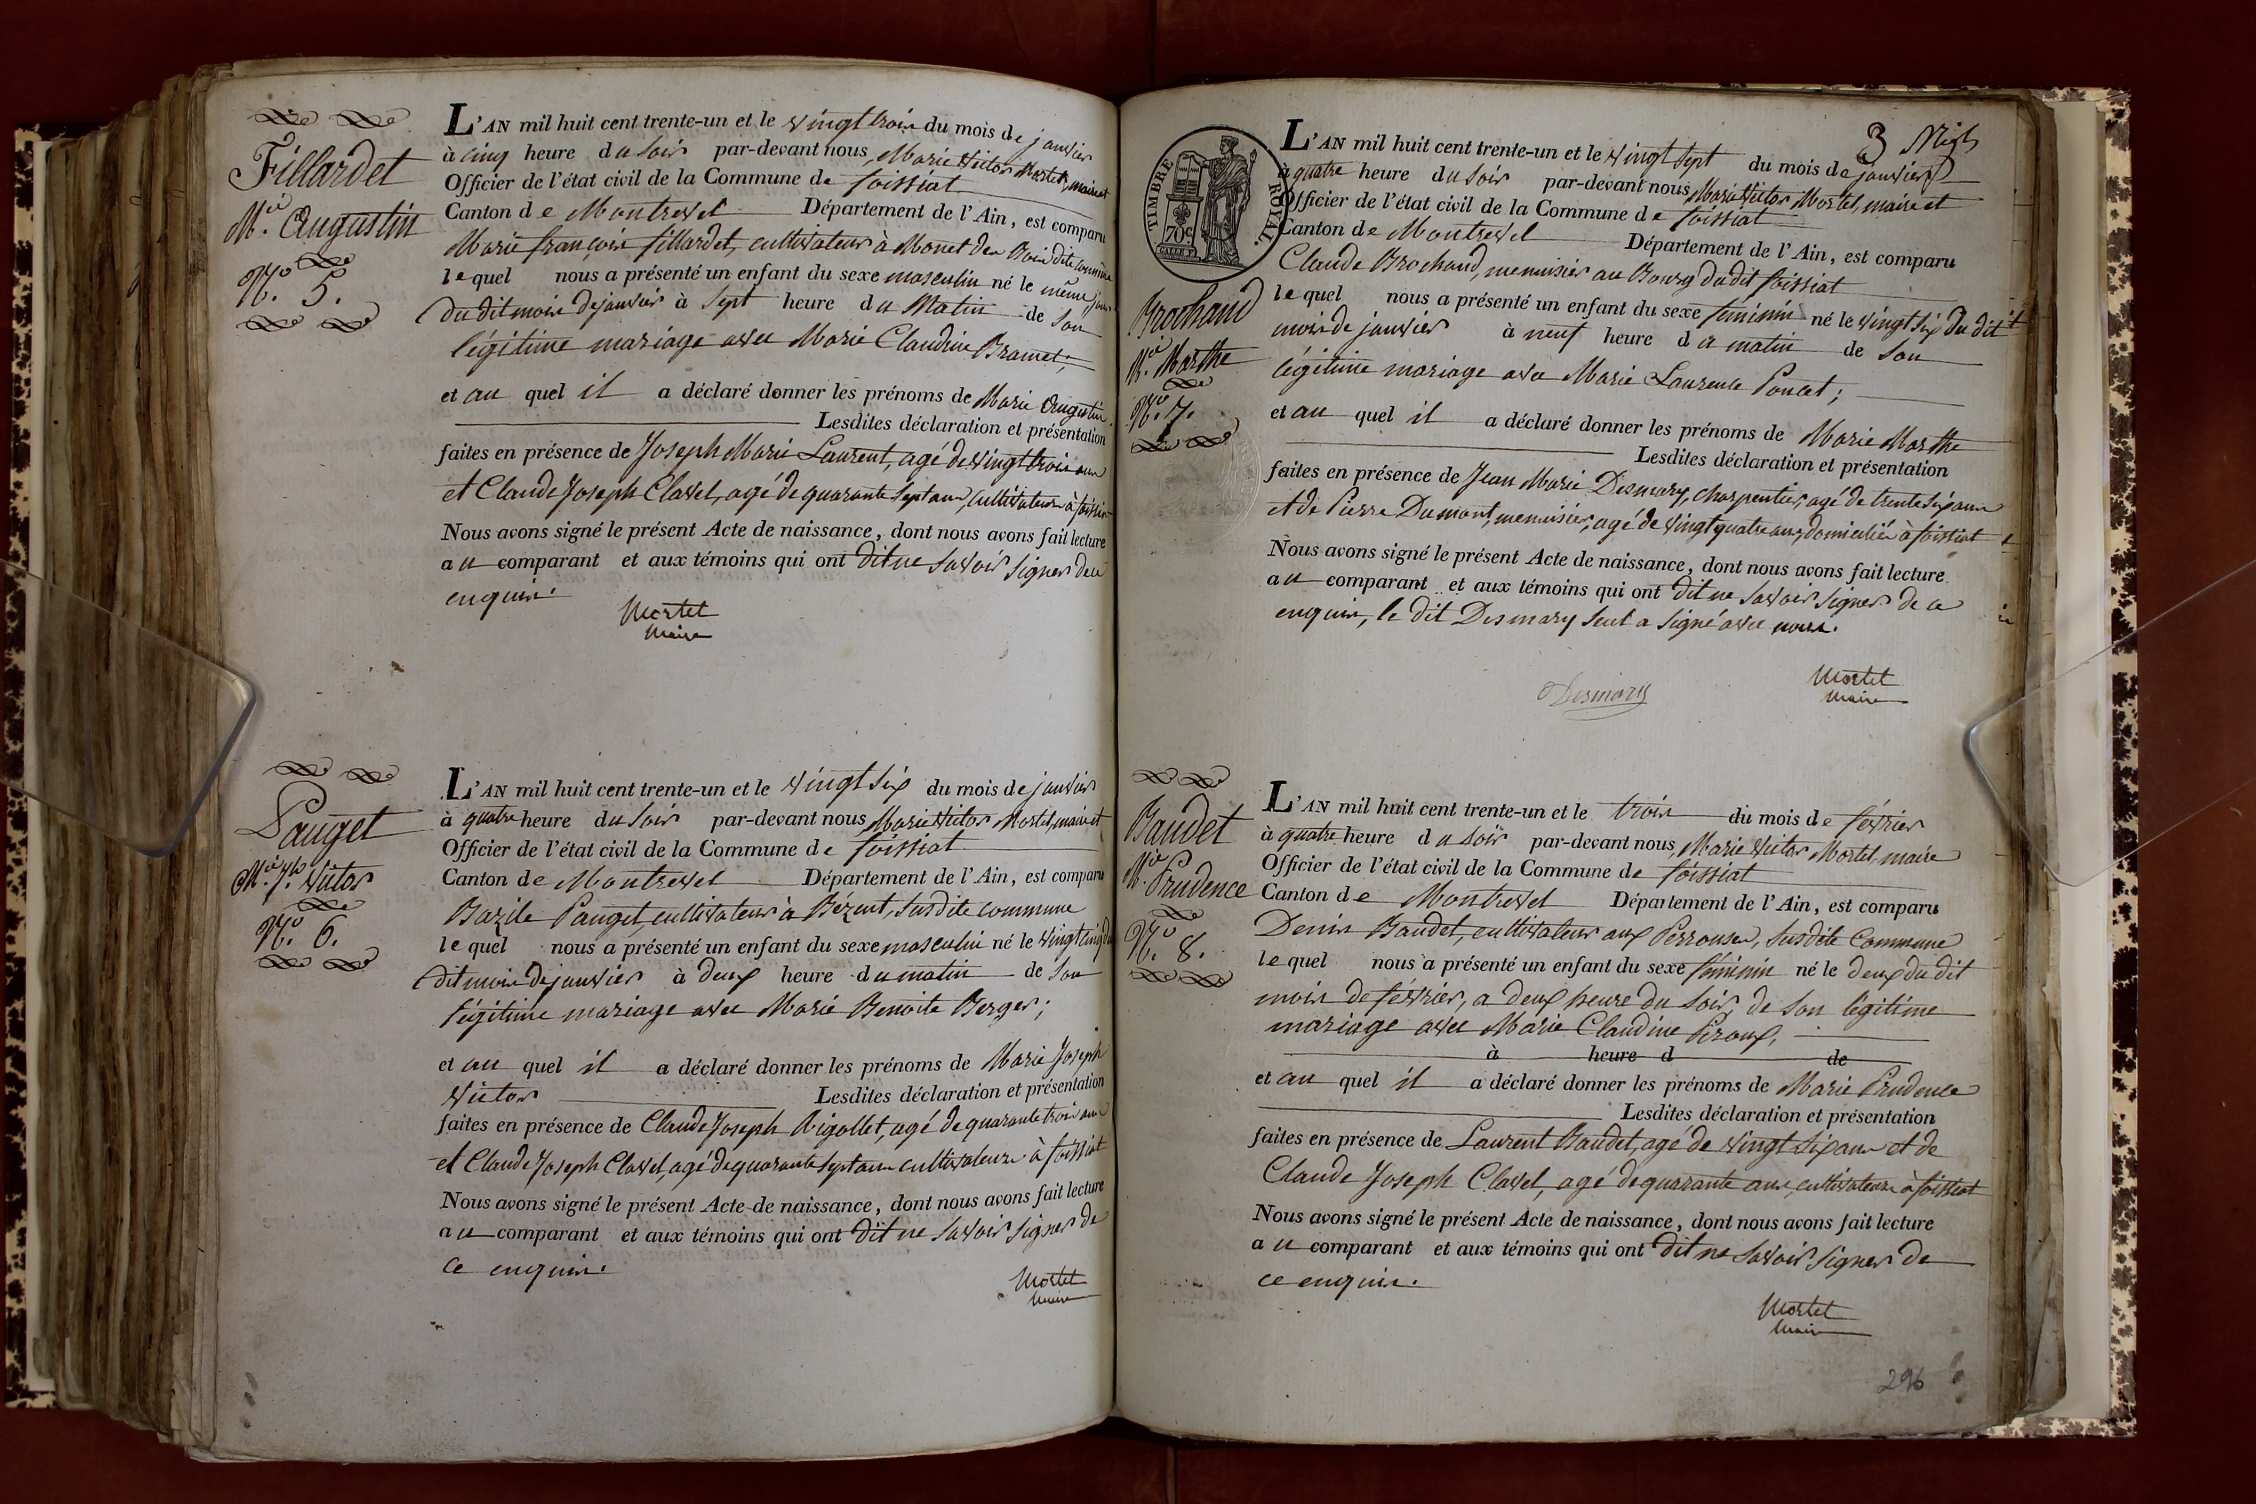 Fillardet
M.ie Augustin
N.o 5.
L'AN mil huit cent trente-un et le vingt trois du mois de janvier
à cinq heure du soir par-devant nous Marie Victor Mortel, maire et
Officier de l'état civil de la Commune de foissiat
Canton de Montrevel Département de l'Ain, est comparu
Marie françois fillardet, cultivateur à Monet des Bois dite commune
le quel nous a présenté un enfant du sexe masculin né le même jour
du dit mois de janvier à sept heure du Matin de son
légitime mariage avec Marie Claudine Bramet;
et au quel il a déclaré donner les prénoms de Marie Augustin.
Lesdites déclaration et présentation
faites en présence de Joseph Marie Laurent, agé de vingt trois ans
et Claude Joseph Clavel, agé de quarante sept ans, cultivateurs à foissiat
Nous avons signé le présent Acte de naissance, dont nous avons fait lecture
au comparant et aux témoins qui ont dit ne savoir signer de ce
enquis.
Mortel
Maire
Pauget
M.ie J.h Victor
N.o 6.
L'AN mil huit cent trente-un et le vingt six du mois de janvier
à quatre heure du soir par-devant nous Marie Victor Mortel, maire et
Officier de l'état civil de la Commune de foissiat
Canton de Montrevel Département de l'Ain, est comparu
Bazile Pauget, cultivateur à Bézent, susdite commune
le quel nous a présenté un enfant du sexe masculin né le vingt cinq du
dit mois de janvier à deux heure du matin de son
légitime mariage avec Marie Benoite Berger;
et au quel il a déclaré donner les prénoms de Marie Joseph
Victor Lesdites déclaration et présentation
faites en présence de Claude Joseph Rigollet, agé de quarante trois ans
et Claude Joseph Clavel, agé de quarante sept ans cultivateurs à foissiat
Nous avons signé le présent Acte de naissance, dont nous avons fait lecture
au comparant et aux témoins qui ont dit ne savoir signer de
ce enquis.
Mortel
Maire
3
TIMBRE ROYAL.
70c
Brochand
M.ie Marthe
N.o 7.
L'AN mil huit cent trente-un et le vingt sept du mois de janvier
à quatre heure du soir par-devant nous Marie Victor Mortel, maire et
Officier de l'état civil de la Commune de foissiat
Canton de Montrevel Département de l'Ain, est comparu
Claude Brochand, menuisier au Bourg du dit foissiat
le quel nous a présenté un enfant du sexe féminin né le vingt six du dit
mois de janvier à neuf heure du matin de son
légitime mariage avec Marie Laurence Poncet;
et au quel il a déclaré donner les prénoms de Marie Marthe
Lesdites déclaration et présentation
faites en présence de Jean Marie Desmary, charpentier, agé de trente six ans
et de Pierre Dumont, menuisier, agé de vingt quatre ans, domiciliés à foissiat
Nous avons signé le présent Acte de naissance, dont nous avons fait lecture
au comparant et aux témoins qui ont dit ne savoir signer de ce
enquis, le dit Desmary seul a signé avec nous.
Desmary
Mortel
Maire
Baudet
M.ie Prudence
N.o 8.
L'AN mil huit cent trente-un et le trois du mois de février
à quatre heure du soir par-devant nous, Marie Victor Mortel, maire
Officier de l'état civil de la Commune de foissiat
Canton de Montrevel Département de l'Ain, est comparu
Denis Baudet, cultivateur aux Perrouses, susdite commune
le quel nous a présenté un enfant du sexe féminin né le deux du dit
mois de février, a deux heure du soir, de son légitime
mariage avec Marie Claudine Piroux,
à heure d de
et au quel il a déclaré donner les prénoms de Marie Prudence
Lesdites déclaration et présentation
faites en présence de Laurent Baudet, agé de vingt six ans et de
Claude Joseph Clavel, agé de quarante ans, cultivateurs à foissiat
Nous avons signé le présent Acte de naissance, dont nous avons fait lecture
au comparant et aux témoins qui ont dit ne savoir signer de
ce enquis.
Mortel
Maire
296